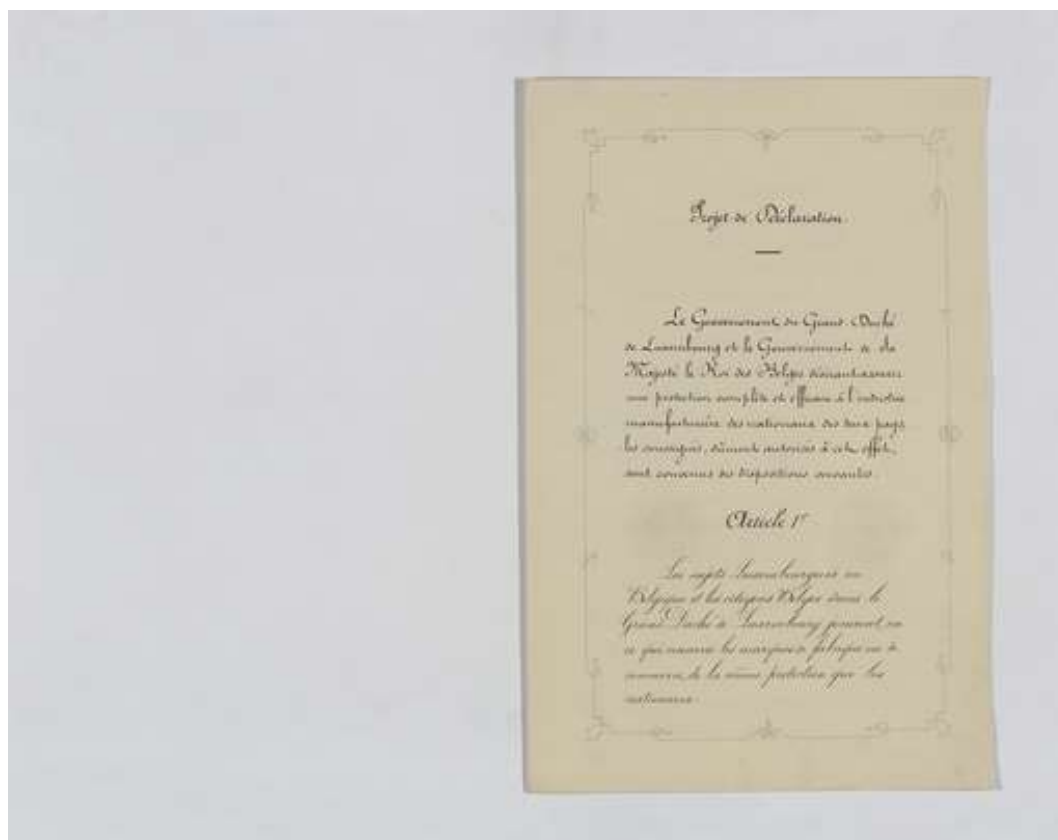 Projet de Déclaration.
Le Gouvernement du Grand-Duché
de Luxembourg et le Gouvernement de Sa
Majesté le Roi des Belges désirant assurer
une protection complète et efficace à l'industrie
manufacturière des nationaux des deux pays
les soussignés, dûment autorisés à cet effet,
sont convenus des dispositions suivantes.
Article 1er
Les sujets Luxembourgeois en
Belgique et les citoyens Belges dans le
Grand-Duché de Luxembourg jouiront, en
ce qui concerne les marques de fabrique ou de
commerce, de la même protection que les
nationaux.